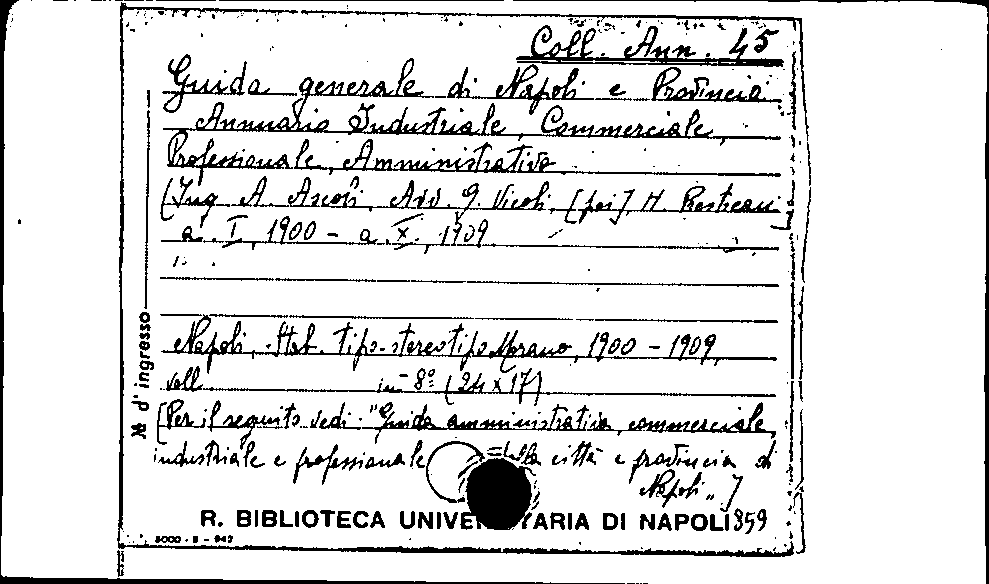 Coll. Ann. 45
Guida generale di Napoli e Provincia
Annuario Industriale, Commerciale,
Professionale, Amministrativo
[Ing. A. Ascoli, Avv. G. Vicoli, [poi] H.
a. I, 1900 - a. X, 1909.
Napoli, Stab. tipo-stereotipo Morano, 1900 - 1909,
voll. in-8º (24 x 17)
[Per il seguito vedi: "Guida amministrativa, commerciale,
industriale e professionale della città e provincia di
Napoli„]
R. BIBLIOTECA UNIVE TARIA DI NAPOLI 859
5000 - 8 - 942
№ d'ingresso